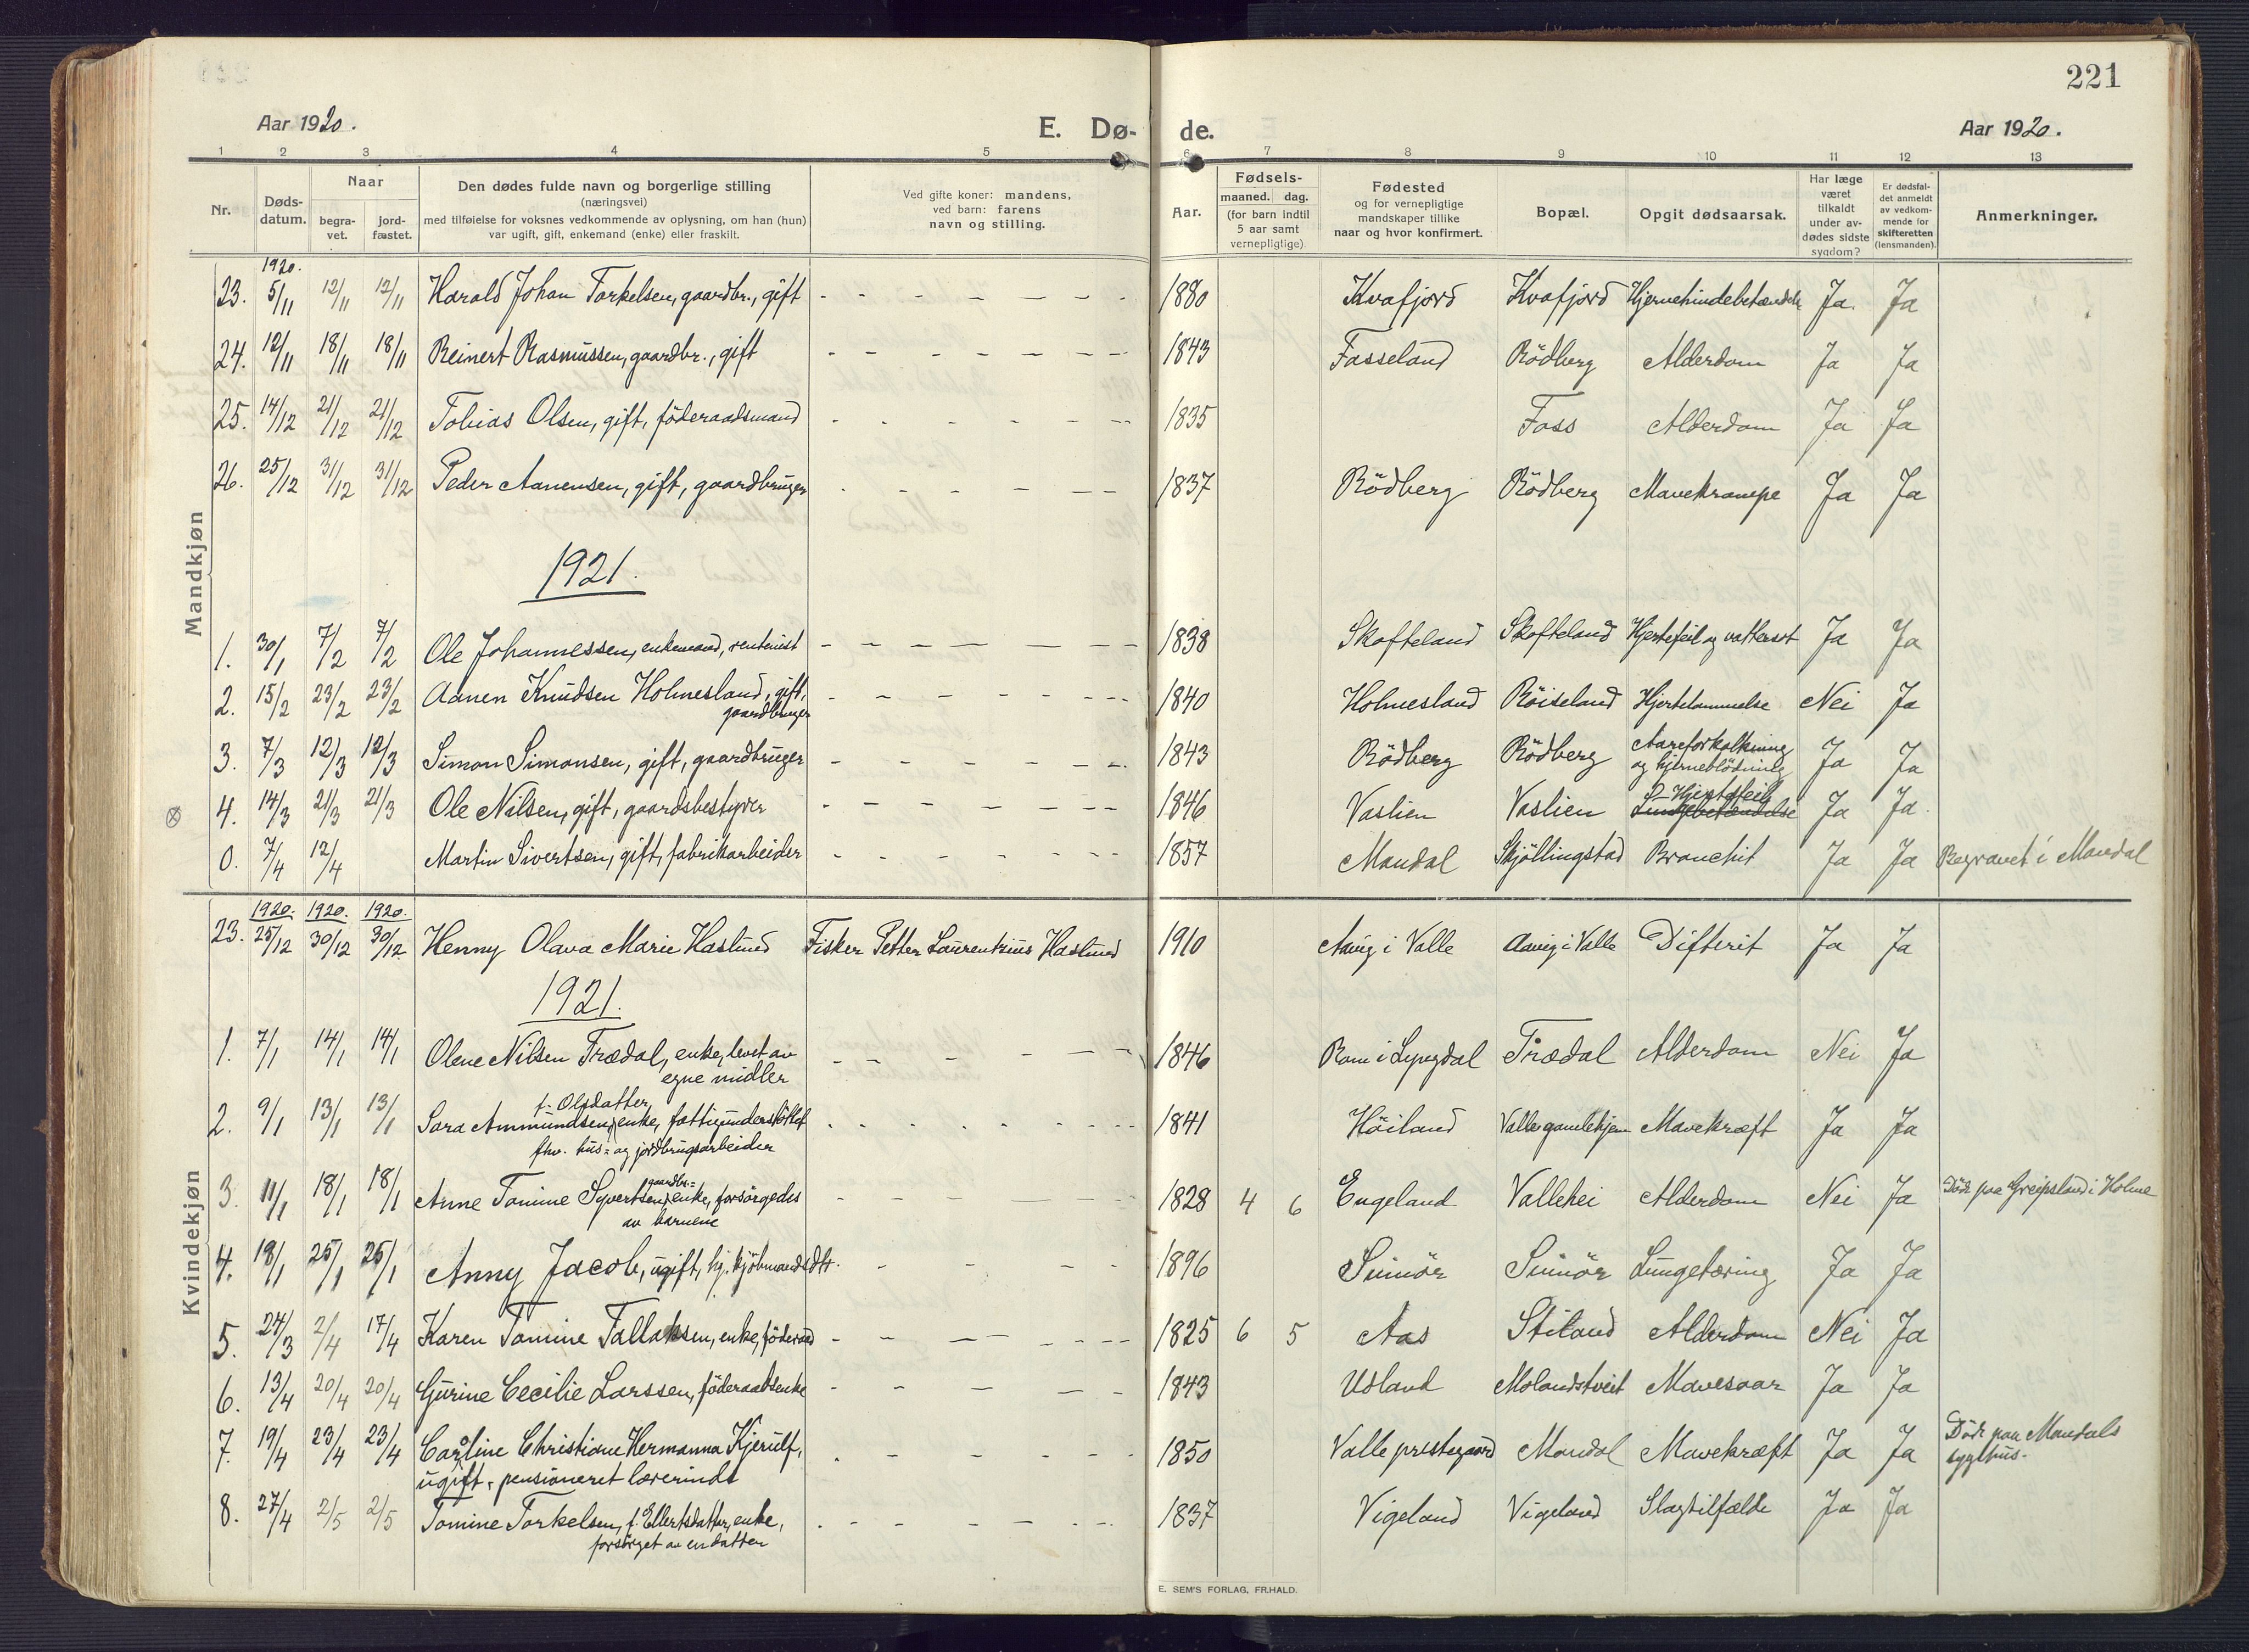 221
Aar 1920.
E. Dø-
de.
Aar 1920.
1 2 3 4 5 6 7 8 9 10 11 12 13
Nr.
Døds-
datum.
Naar
begra-
vet.
jord-
fæstet.
Den dødes fulde navn og borgerlige stilling
(næringsvei)
med tilføielse for voksnes vedkommende av oplysning, om han (hun)
var ugift, gift, enkemand (enke) eller fraskilt.
Ved gifte koner: mandens,
ved barn: farens
navn og stilling.
Aar.
Fødsels-
maaned. dag.
(for barn indtil
5 aar samt
vernepligtige).
Fødested
og for vernepligtige
mandskaper tillike
naar og hvor konfirmert.
Bopæl.
Opgit dødsaarsak.
Har læge
været
tilkaldt
under av-
dødes sidste
sygdom?
Er dødsfal-
det anmeldt
av vedkom-
mende for
skifteretten
(lensmanden).
Anmerkninger.
Mandkjøn
1920.
23. 5/11 12/11 12/11 Harald Johan Torkelsen, gaardbr., gift - - - - - - 1880 Kvafjord Kvafjord Hjernehindebetændels Ja. Ja
24. 12/11 18/11 18/11 Reinert Rasmussen, gaardbr., gift - - - - - - 1843 Fasseland Rödberg Alderdom Ja Ja
25. 14/12 21/12 21/12 Tobias Olsen, gift, föderaadsmand - - - - - - 1835 Foss Alderdom Ja Ja
26. 25/12 31/12 31/12 Peder Aanensen, gift, gaardbruger - - - - - - 1837 Rödberg Rödberg Mavekrampe Ja Ja
1921.
1. 30/1 7/2 7/2 Ole Johannessen, enkemand, rentenist - - - - - - 1838 Skofteland Skofteland Hjertefeil og vattersot Ja Ja
2. 15/2 23/2 23/2 Aanen Knudsen Holmesland, gift, - - - - - - 1840 Holmesland Röiseland Hjertelammelse Nei Ja
gaardbruger
3. 7/3 12/3 12/3 Simon Simonsen, gift, gaardbruger - - - - - - 1843 Rödberg Rödberg Aareforkalkning Ja Ja
og hjerneblödning
4. 14/3 21/3 21/3 Ole Nilsen, gift, gaardsbestyrer - - - - - - 1846 Vaslien Vaslien Hjertefeil Ja Ja
Lungebetændelse
0. 7/4 12/4 Martin Sivertsen, gift, fabrikarbeider - - - - - - 1857 Mandal Skjöllingstad Bronchit Ja Ja Begravet i Mandal
Kvindekjøn
1920. 1920. 1920.
23. 25/12 30/12 30/12 Henny Olava Marie Haslund Fisker Petter Laurentzius Haslund 1910 Aavig i Valle Aavig i Valle Difterit Ja Ja
1921.
1. 7/1 14/1 14/1 Olene Nilsen Trædal, enke, levet av - - - - - - 1846 Rom i Lyngdal Trædal Alderdom Nei Ja
egne midler
f. Olsdatter
2. 9/1 13/1 13/1 Sara Ammundsen, enke, fattigunderstöttet - - - - - - 1841 Höiland Valle gamlehjem Mavekræft Ja Ja
fhv. hus- og jordbrugsarbeider
gaardbr.=
3. 11/1 18/1 18/1 Anne Tomine Syvertsen, enke, forsörgedes - - - - - 1828 4 6 Engeland Vallehei Alderdom Nei Ja Död paa Greipsland i Holme
av barnene
4. 18/1 25/1 25/1 Anny Jacob, ugift, hj. kjöbmandsdtr. - - - - 1896 Svinör Svinör Lungetæring Ja Ja
5. 24/3 2/4 17/4 Karen Tomine Tallaksen, enke, föderaad - - - - - - 1825 6 5 Aas Stiland Alderdom Nei Ja
6. 13/4 20/4 20/4 Gurine Cecilie Larssen, föderaadsenke - - - - - 1843 Udland Molandstveit Mavesaar Ja Ja
7. 19/4 23/4 23/4 Caroline Christiane Hermanna Kjerulf, - - - - - - 1850 Valle prestegaard Mandal Mavekræft Ja Ja Död paa Mandals
ugift, pensioneret lærerinde sygehus.
8. 27/4 2/5 2/5 Tomine Torkelsen, f. Ellertsdatter, enke, - - - - - - 1837 Vigeland Vigeland Slagtilfælde Ja Ja
forsörget av en datter
E. SEM'S FORLAG, FR.HALD.